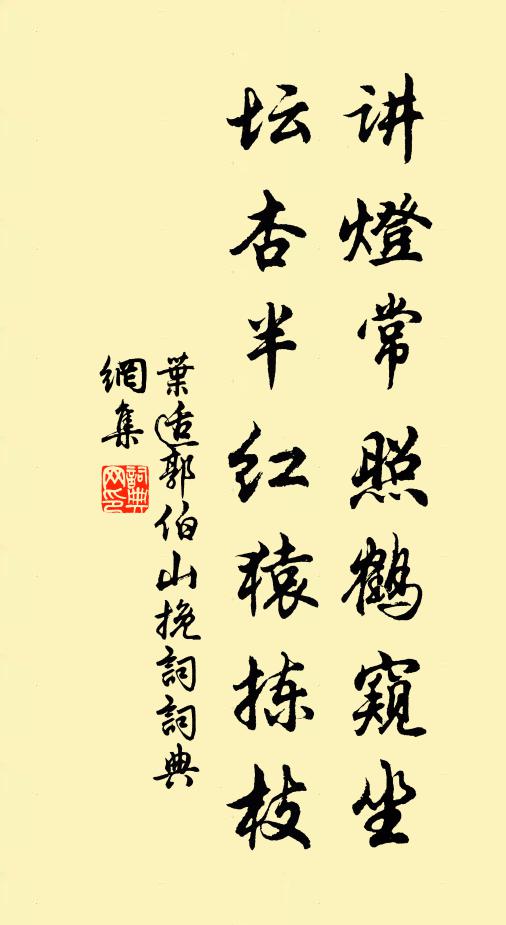 讲燈常照鹤窺坐
坛杏半红猿拣枝
葉适郭伯山挽詞詞典
網集
詞典網印